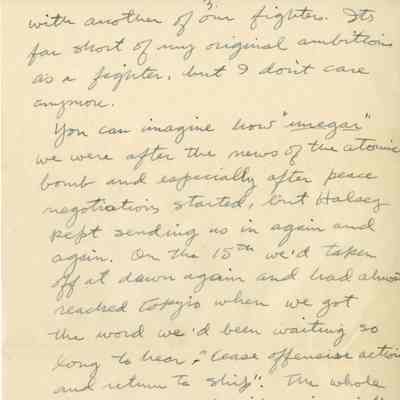 3.
with another of our fighters. Its
far short of my original ambitions
as a fighter, but I don't care
anymore.
You can imagine how "
we were after the news of the atomic
bomb and especially after peace
negotiations started, but Halsey
kept sending us in again and
again. On the 15th we'd taken
off at dawn again and had almost
reached Tokyio when we got
the word we'd been waiting so
long to hear, "Cease offensive action
and return to ship". The whole